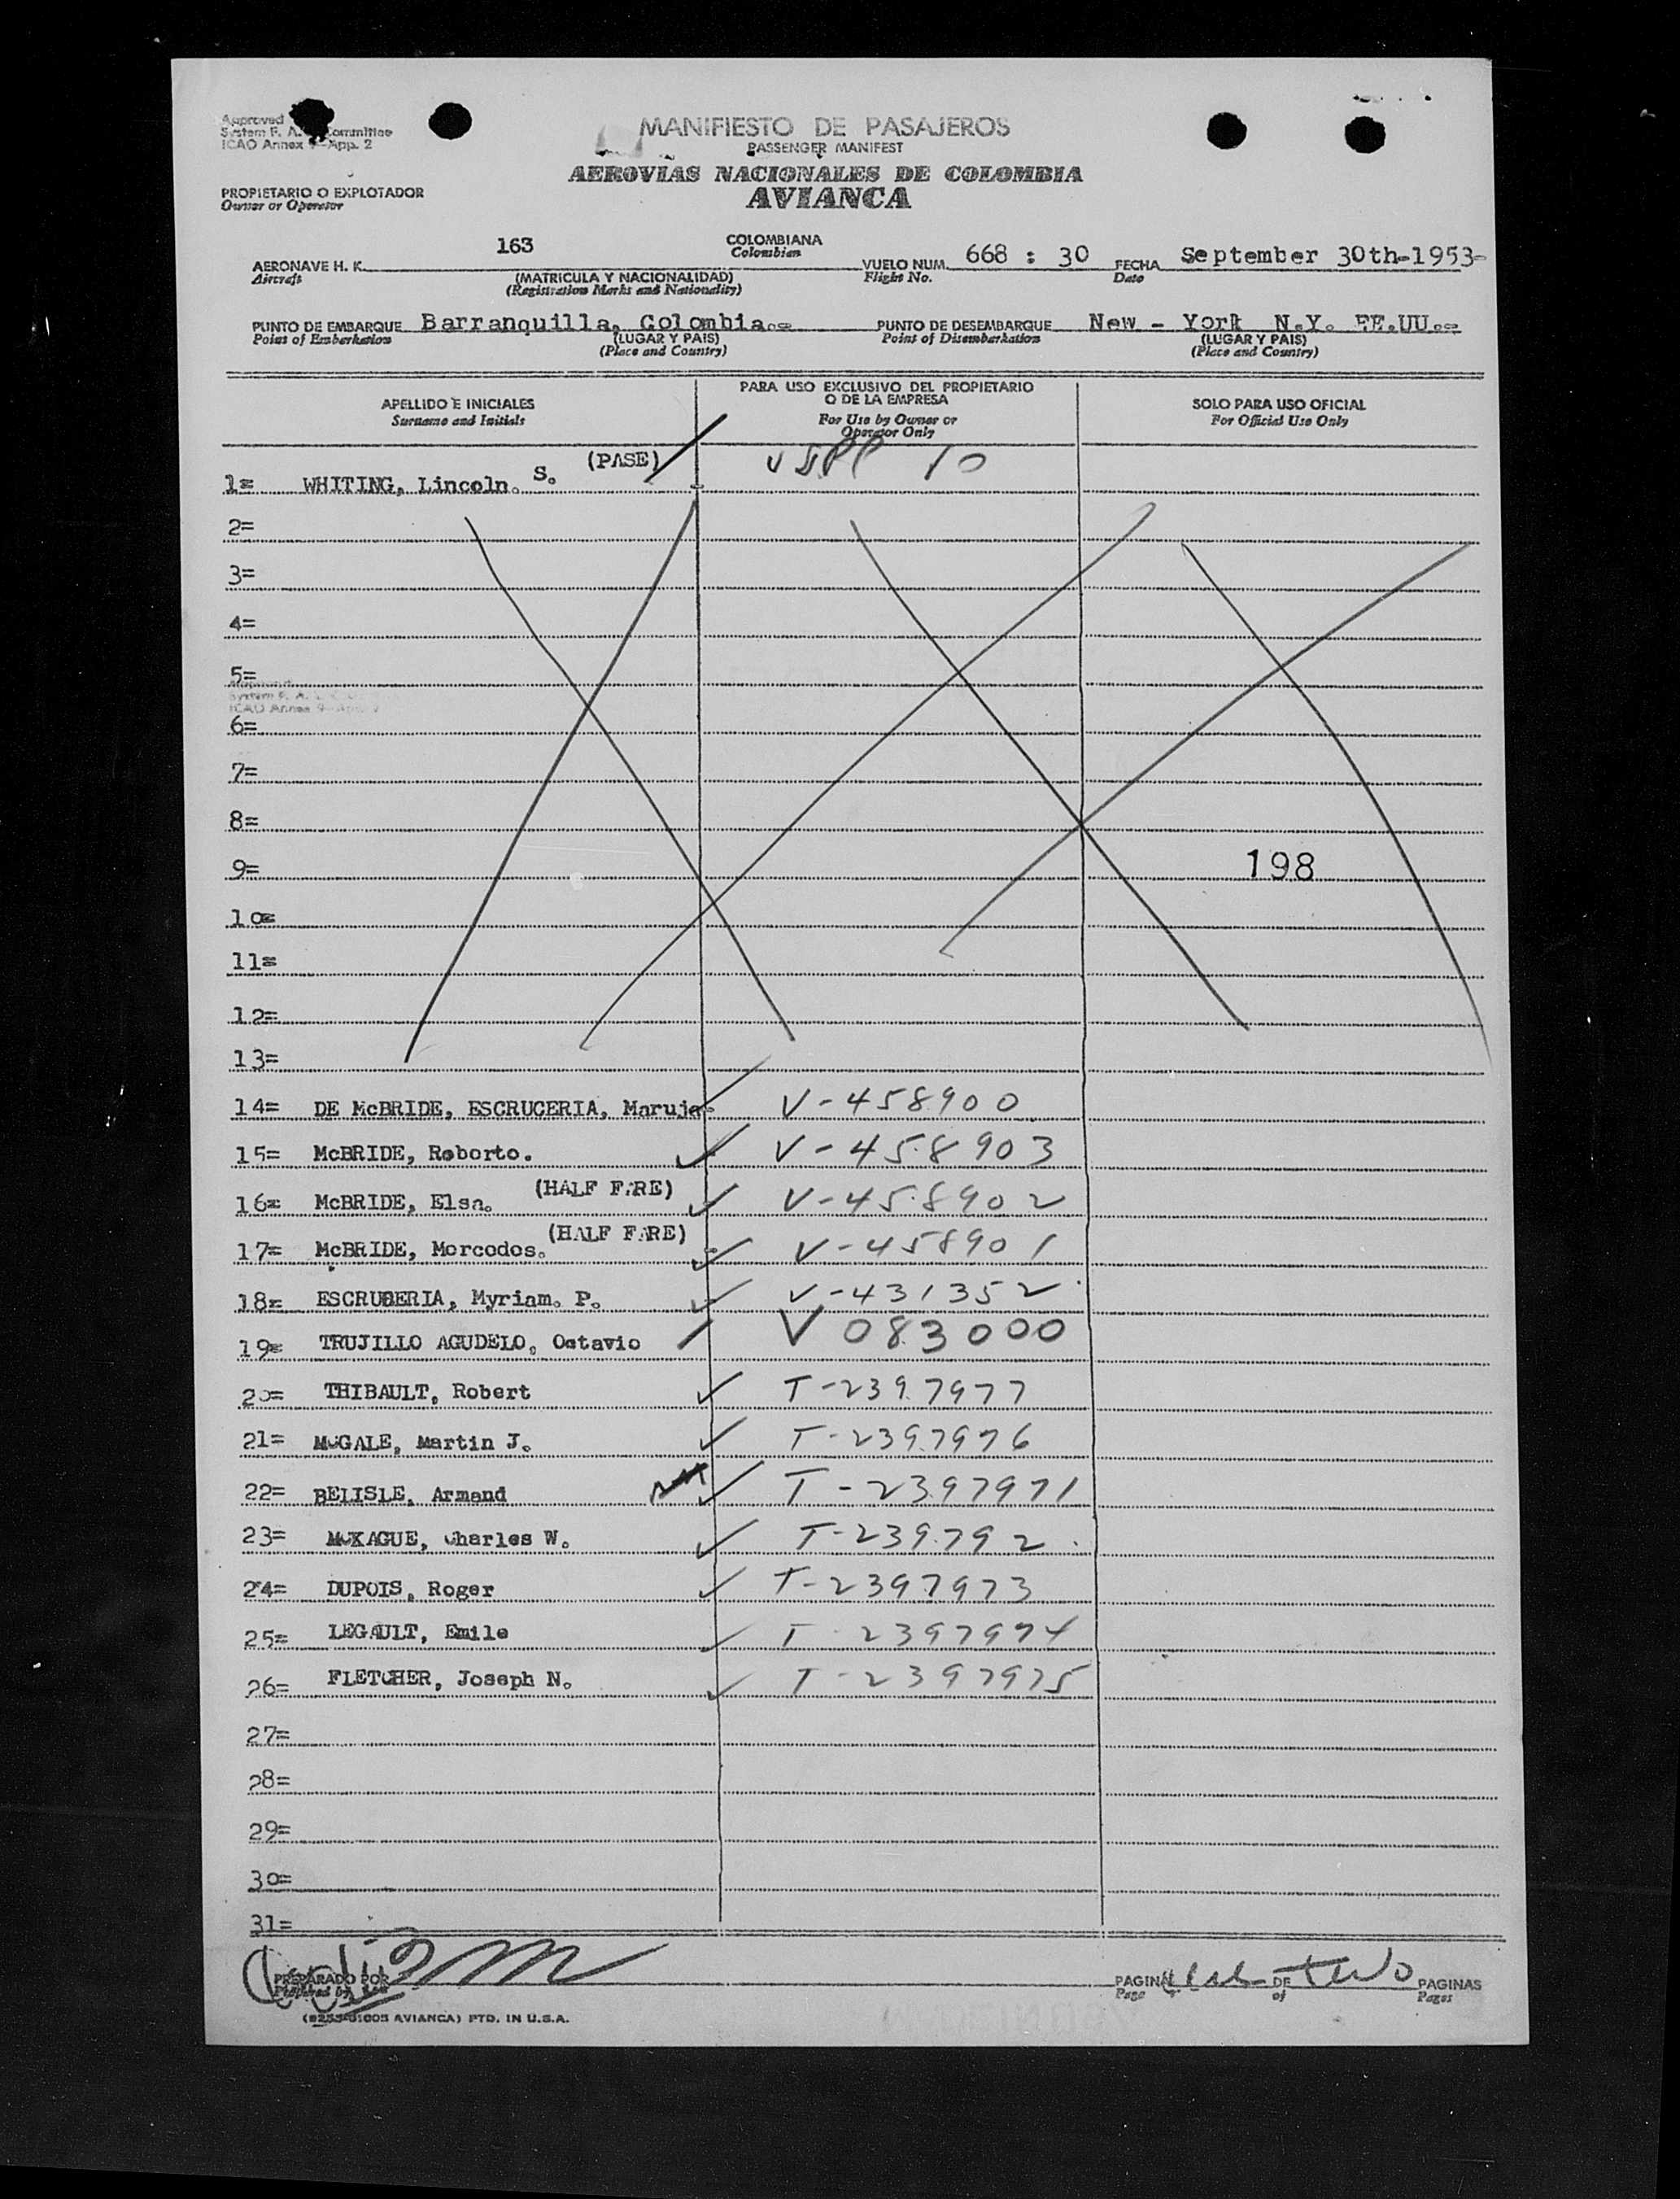 Approved
System F. A. Committee
ICAO Annex 9-App. 2
MANIFIESTO DE PASAJEROS
PASSENGER MANIFEST
AEROVÍAS NACIONALES DE COLOMBIA
AVIANCA
PROPIETARIO O EXPLOTADOR
Owner or Operator
AERONAVE H. K. 163 COLOMBIANA
Aircraft Colombian
(MATRICULA Y NACIONALIDAD)
(Registration Marks and Nationality)
VUELO NUM. 668 : 30 FECHA September 30th-1953-
Flight No. Date
PUNTO DE EMBARQUE Barranquilla, Colombia.= PUNTO DE DESEMBARQUE New - York N.Y. EE.UU.=
Point of Embarkation (LUGAR Y PAIS) Point of Disembarkation (LUGAR Y PAIS)
(Place and Country) (Place and Country)
APELLIDO E INICIALES
Surname and Initials
PARA USO EXCLUSIVO DEL PROPIETARIO
O DE LA EMPRESA
For Use by Owner or
Operator Only
SOLO PARA USO OFICIAL
For Official Use Only
1= WHITING, Lincoln. S. (PASE) 10
2=
3=
4=
5=
System F. A.
ICAO Annex 9-App.
6=
7=
8=
9= 198
10=
11=
12=
13=
14= DE McBRIDE, ESCRUCERIA, Maruja V-458900
15= McBRIDE, Roborto. V-458903
16= McBRIDE, Elsa. (HALF FARE) V-458902
17= McBRIDE, Morcodos. (HALF FARE) V-458901
18= ESCRUBERIA, Myriam. P. V-431352
19= TRUJILLO AGUDELO, Octavio V 083000
20= THIBAULT, Robert T-2397977
21= McGALE, Martin J. T-2397976
22= BELISLE, Armand T-2397971
23= McKAGUE, Charles W. T-239792
24= DUPOIS, Roger T-2397973
25= LEGAULT, Emile T-2397974
26= FLETCHER, Joseph N. T-2397975
27=
28=
29=
30=
31=
PREPARADO POR
Prepared by
PAGINA DE two PAGINAS
Page of Pages
AVIANCA) PTD. IN U.S.A.